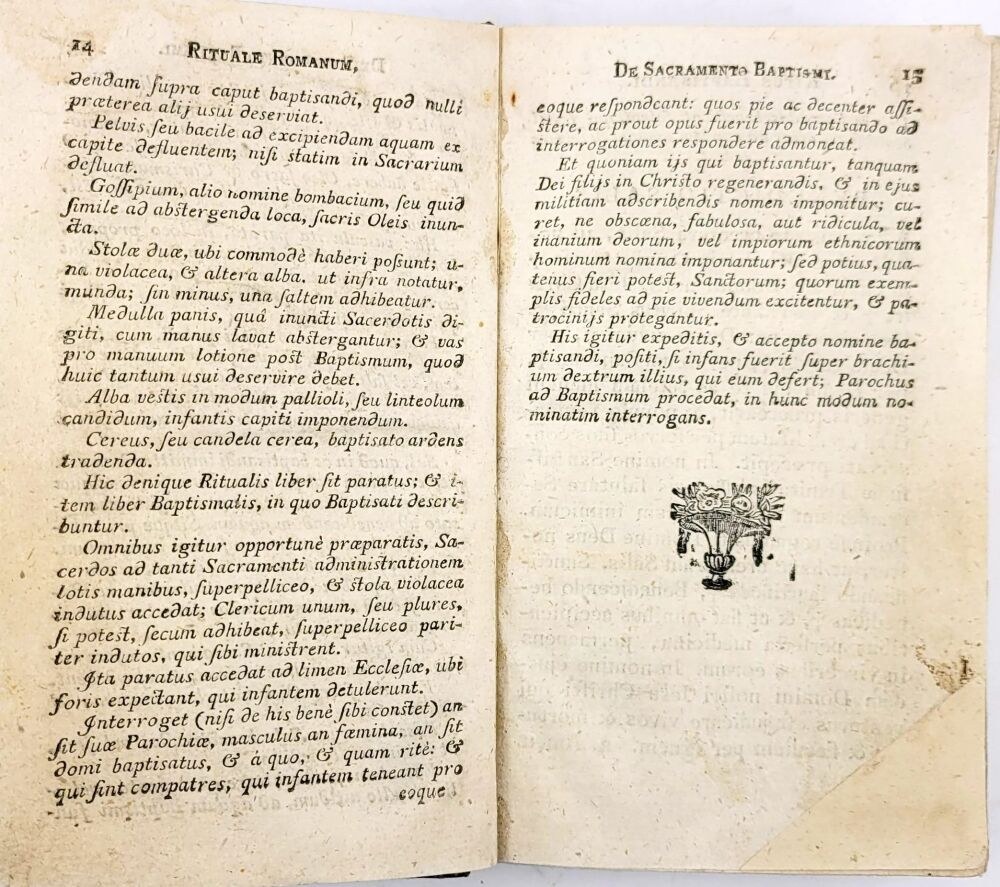 14 RITUALE ROMANUM,
dendam ſupra caput baptisandi, quod nulli
præterea alij usui deserviat.
Pelvis ſeu bacile ad excipiendam aquam ex
capite defluentem; niſi ſtatim in Sacrarium
defluat.
Goſſipium, alio nomine bombacium, ſeu quid
ſimile ad abſtergenda loca, ſacris Oleis inun-
cta.
Stolæ duæ, ubi commodè haberi poſsunt; u-
na violacea, & altera alba, ut infra notatur,
munda; ſin minus, una ſaltem adhibeatur.
Medulla panis, quâ inuncti Sacerdotis di-
giti, cum manus lavat abſtergantur; & vas
pro manuum lotione poſt Baptismum, quod
huic tantum usui deservire debet.
Alba veſtis in modum pallioli, ſeu linteolum
candidum, infantis capiti imponendum.
Cereus, ſeu candela cerea, baptisato ardens
tradenda.
Hic denique Ritualis liber ſit paratus; & i-
tem liber Baptismalis, in quo Baptisati descri-
buntur.
Omnibus igitur opportunè præparatis, Sa-
cerdos ad tanti Sacramenti adminiſtrationem
lotis manibus, ſuperpelliceo, & ſtola violacea
indutus accedat; Clericum unum, ſeu plures,
ſi poteſt, ſecum adhibeat, ſuperpelliceo pari-
ter indutos, qui ſibi miniſtrent.
Ita paratus accedat ad limen Ecclesiæ, ubi
foris expectant, qui infantem detulerunt.
Interroget (niſi de his benè ſibi conſtet) an
ſit ſuæ Parochiæ, masculus an fæmina, an ſit
domi baptisatus, & à quo, & quam ritè: &
qui ſint compatres, qui infantem teneant pro
eoque
DE SACRAMENTO BAPTISMI. 15
eoque reſpondeant: quos pie ac decenter aſſi-
ſtere, ac prout opus fuerit pro baptisando ad
interrogationes respondere admoneat.
Et quoniam ijs qui baptisantur, tanquam
Dei filijs in Chriſto regenerandis, & in ejus
militiam adscribendis nomen imponitur; cu-
ret, ne obscœna, fabulosa, aut ridicula, vel
inanium deorum, vel impiorum ethnicorum
hominum nomina imponantur; ſed potius, qua-
tenus fieri poteſt, Sanctorum; quorum exem-
plis fideles ad pie vivendum excitentur, & pa-
trocinijs protegantur.
His igitur expeditis, & accepto nomine ba-
ptisandi, poſiti, ſi infans fuerit ſuper brachi-
um dextrum illius, qui eum defert; Parochus
ad Baptismum procedat, in hunc modum no-
minatim interrogans.